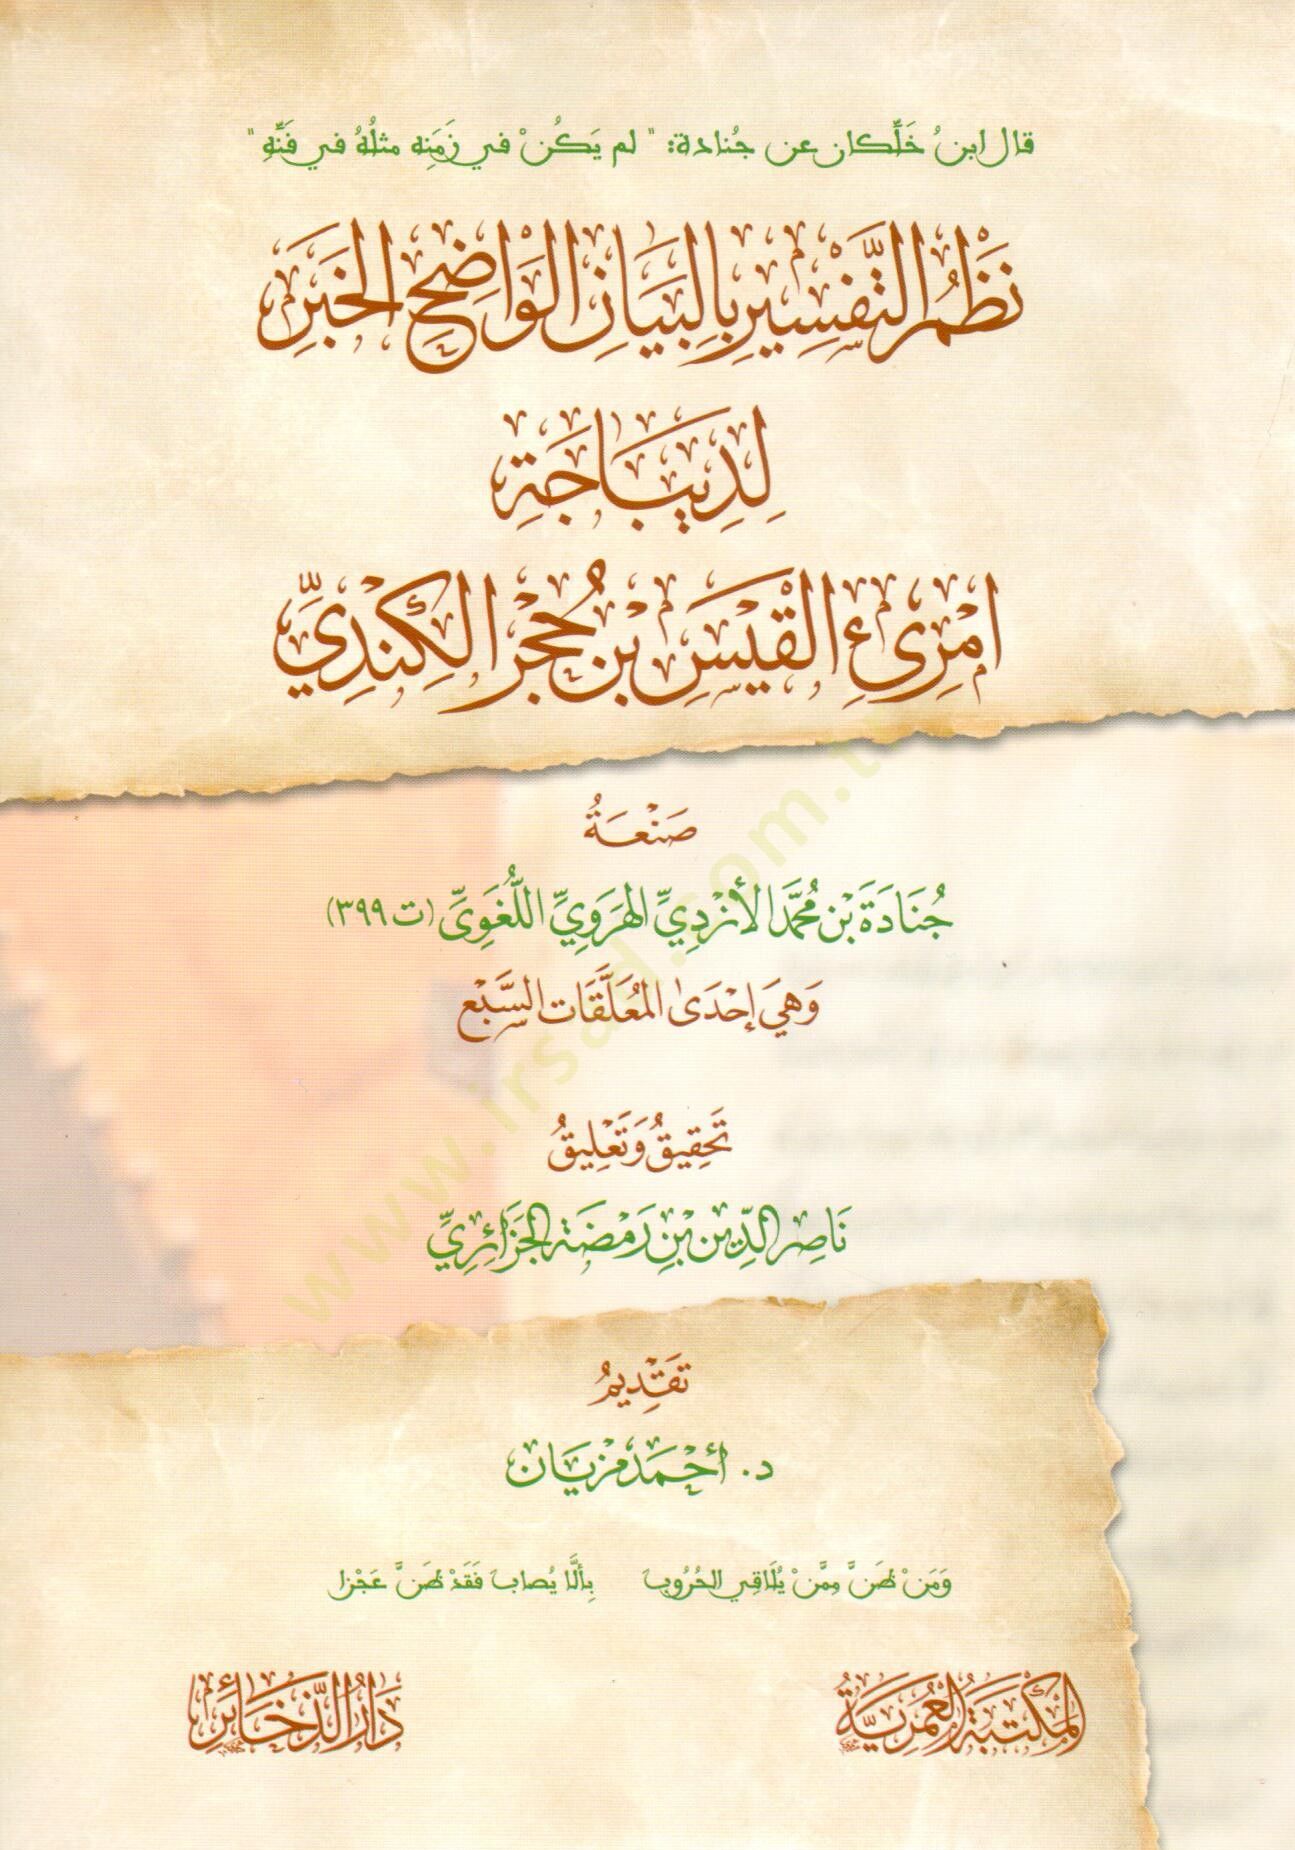 قال ابنُ خَلِّكان عن جُنادة: " لم يَكُنْ في زَمَنِه مثلُهُ في فَنِّهِ "
نَظْمُ التَّفْسِيرِ بِالبَيَانِ الوَاضِحِ الخَبَرِ
لِدِيبَاجَةِ
امْرِئِ القَيْسِ بْنِ حُجْرٍ الكِنْدِيِّ
صَنْعَةُ
جُنَادَةَ بْنِ مُحَمَّدٍ الأَزْدِيِّ الهَرَوِيِّ اللُّغَوِيِّ (ت ٣٩٩)
وَهِيَ إِحْدَى المُعَلَّقَاتِ السَّبْعِ
تَحْقِيقُ وَتَعْلِيقُ
نَاصِرِ الدِّينِ بْنِ رَمْضَةَ الجَزَائِرِيِّ
تَقْدِيمُ
د. أَحْمَد مزيَان
وَمَنْ ظَنَّ مِمَّنْ يُلَاقِي الحُرُوبَ بِأَلَّا يُصَابَ فَقَدْ ظَنَّ عَجْزا
المَكْتَبَةُ العُمَرِيَّةُ
دَارُ الذَّخَائِرِ
www.irsad.com.tr